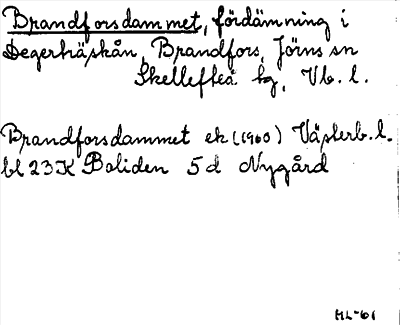 Brandforsdammet, fördämning i
Degerträskån, Brandfors, Jörns sn
Skellefteå kg, Vb. l.
Brandforsdammet ek (1960) Västerb. l.
bl 23K Boliden 5d Nygård
ML-61